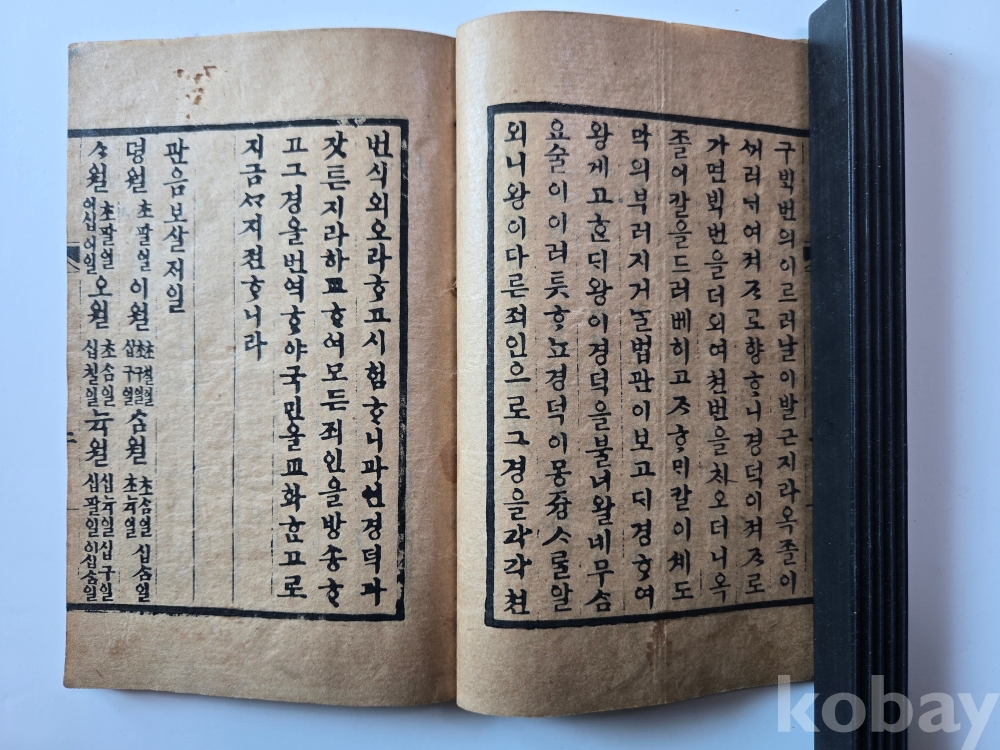 구빅번의이르러날이발근지라옥졸이
ᄭᅥ러ᄂᆡ여져ᄌᆞ로향ᄒᆞ니경덕이져ᄌᆞ로
가면빅번을더외여쳔번을ᄎᆡ오더니옥
졸이칼을드러베히고ᄌᆞᄒᆞᄆᆡ칼이도
막의부러지거ᄂᆞᆯ법관이보고ᄃᆡ경ᄒᆞ여
왕게고ᄒᆞᆫᄃᆡ왕이경덕을불너왈네무ᄉᆞᆷ
요술이이러틋ᄒᆞ뇨경덕이몽즁ᄉᆞ를알
외니왕이다른죄인으로그경을각각쳔
번식외오라ᄒᆞ고시험ᄒᆞ니과연경덕과
갓튼지라하교ᄒᆞ여모든죄인을방송ᄒᆞ
고그경을번역ᄒᆞ야국민을교화ᄒᆞ고로
지금ᄭᅡ지젼ᄒᆞ니라
관음보살저일
뎡월 초팔일 이월 초칠일 십구일 삼월 초삼일 초뉵일 십삼일
ᄉᆞ월 초팔일 이십이일 오월 초삼일 십칠일 뉵월 십뉵일 십구일 십팔일 이십삼일
kobay